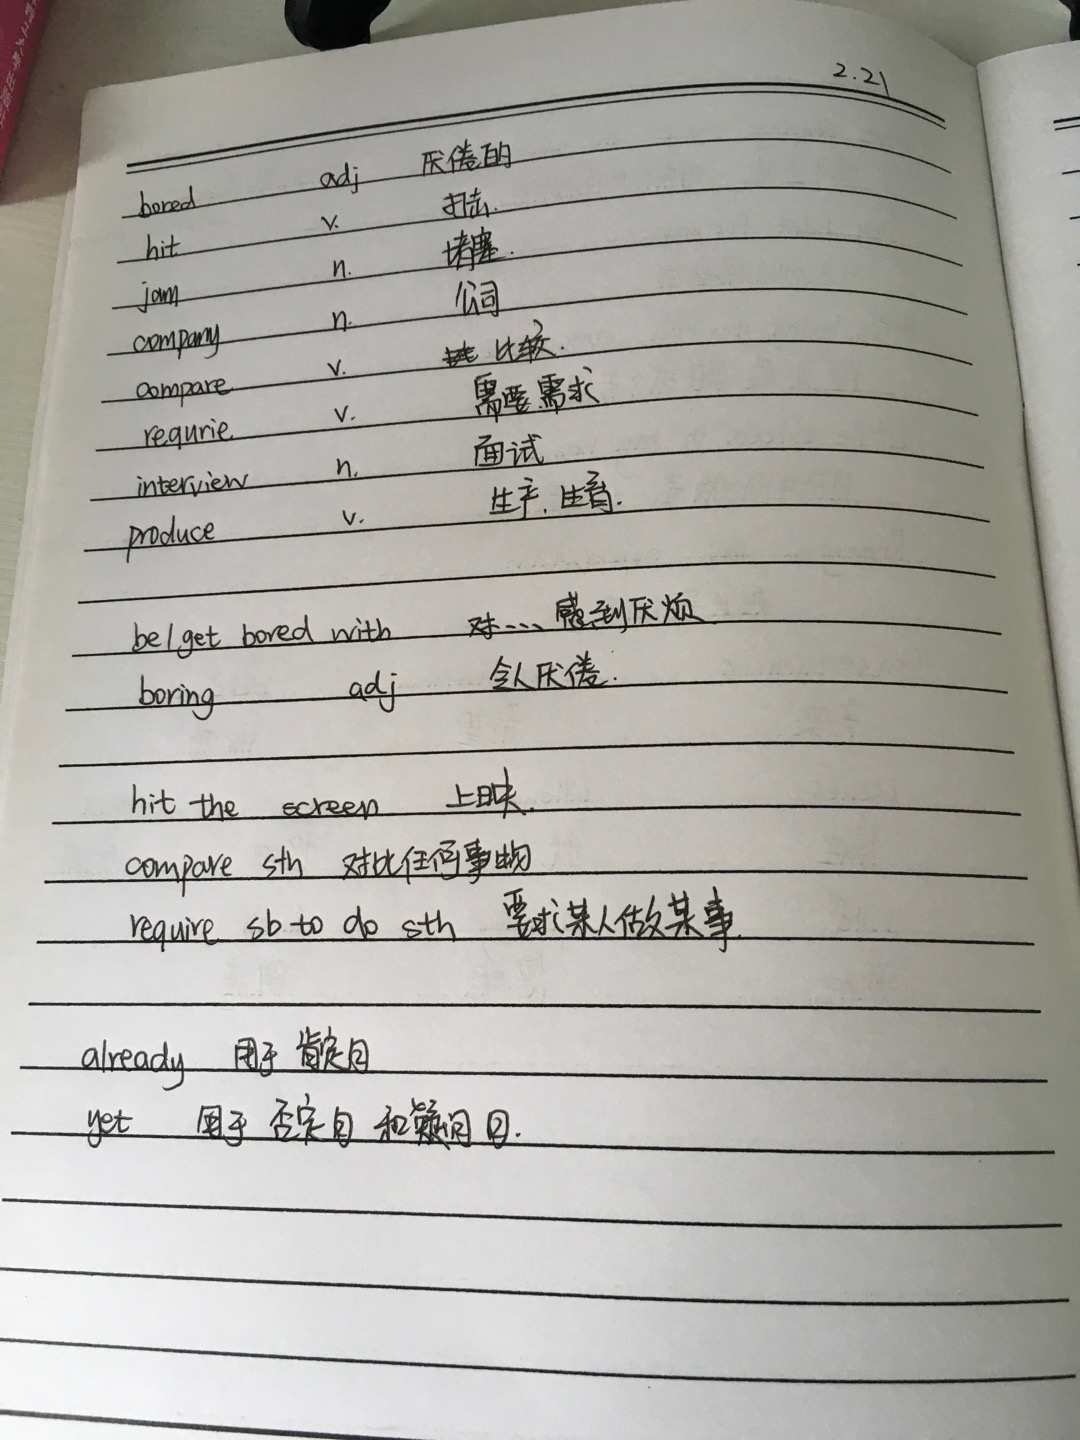 2.21
bored adj 厌倦的
hit v. 打击.
jam n. 堵塞.
company n. 公司
compare v. 比较.
requrie v. 需要需求
interview n. 面试
produce v. 生产.生育.
be/get bored with 对....感到厌烦
boring adj 令人厌倦.
hit the screen 上映.
compare sth 对比任何事物
require sb to do sth 要求某人做某事.
already 用于肯定句
yet 用于否定句和疑问句.